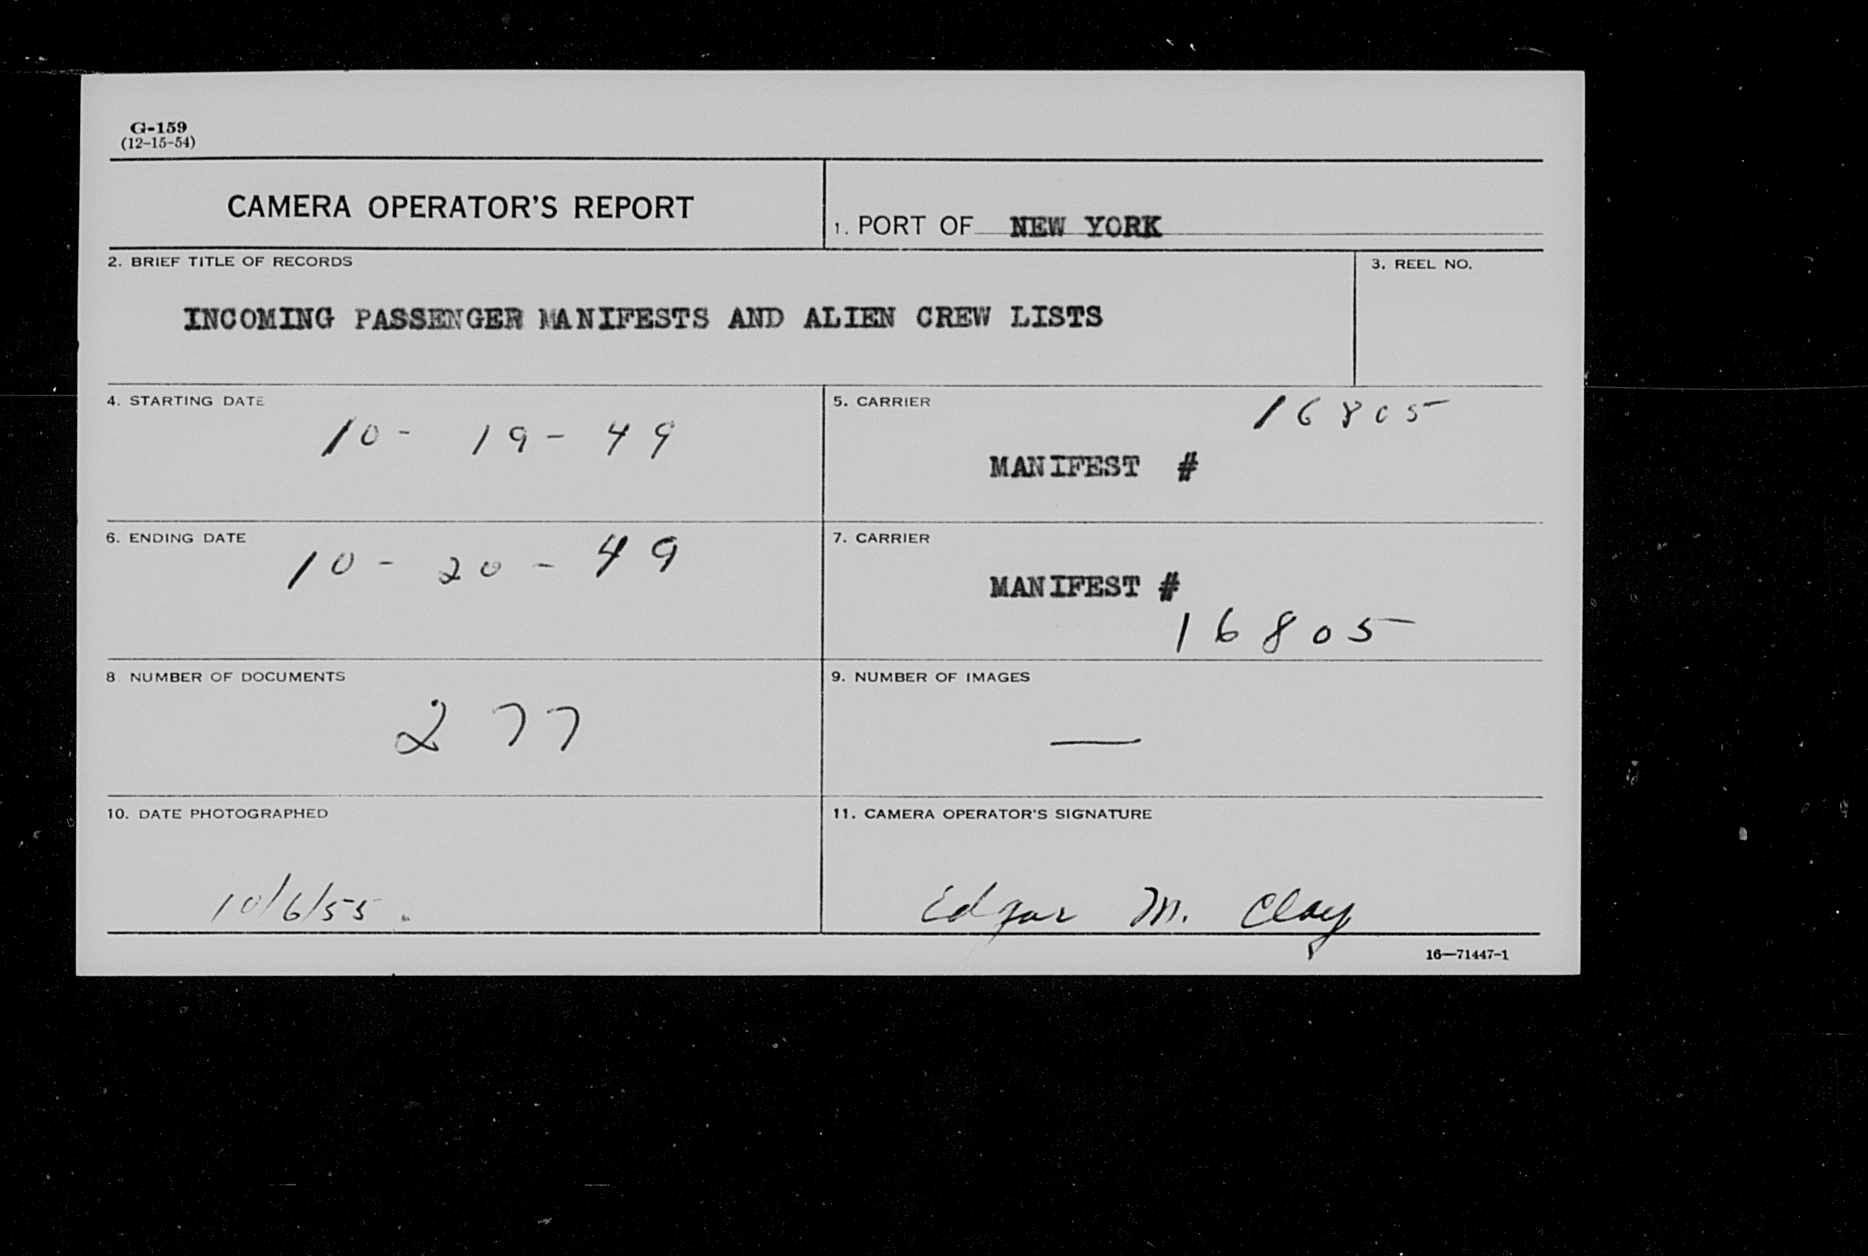 G-159
(12-15-54)
CAMERA OPERATOR'S REPORT
1. PORT OF NEW YORK
2. BRIEF TITLE OF RECORDS
3. REEL NO.
INCOMING PASSENGER MANIFESTS AND ALIEN CREW LISTS
4. STARTING DATE
10- 19-49
5. CARRIER
16805
MANIFEST #
6. ENDING DATE
10-20-49
7. CARRIER
MANIFEST #
16805
8 NUMBER OF DOCUMENTS
277
9. NUMBER OF IMAGES
—
10. DATE PHOTOGRAPHED
10/6/55.
11. CAMERA OPERATOR'S SIGNATURE
Edgar M. Clay
16—71447-1